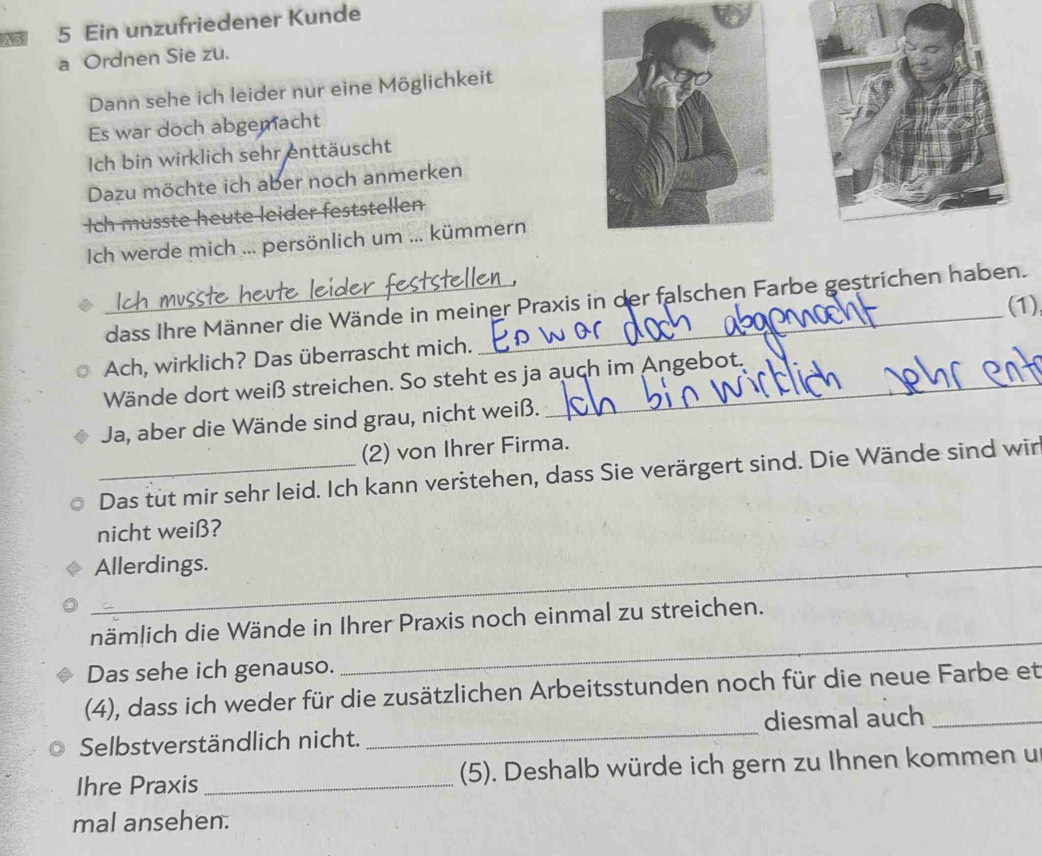 5 Ein unzufriedener Kunde
a Ordnen Sie zu.
Dann sehe ich leider nur eine Möglichkeit
Es war doch abgemacht
Ich bin wirklich sehr enttäuscht
Dazu möchte ich aber noch anmerken
Ich musste heute leider feststellen
Ich werde mich ... persönlich um ... kümmern
Ich musste heute leider feststellen,
dass Ihre Männer die Wände in meiner Praxis in der falschen Farbe gestrichen haben.
Ach, wirklich? Das überrascht mich. Es war doch abgemacht (1),
Wände dort weiß streichen. So steht es ja auch im Angebot.
Ja, aber die Wände sind grau, nicht weiß. Ich bin wirklich sehr ent
(2) von Ihrer Firma.
Das tut mir sehr leid. Ich kann verstehen, dass Sie verärgert sind. Die Wände sind wir
nicht weiß?
Allerdings.
nämlich die Wände in Ihrer Praxis noch einmal zu streichen.
Das sehe ich genauso.
(4), dass ich weder für die zusätzlichen Arbeitsstunden noch für die neue Farbe et
Selbstverständlich nicht. diesmal auch
Ihre Praxis (5). Deshalb würde ich gern zu Ihnen kommen u
mal ansehen.